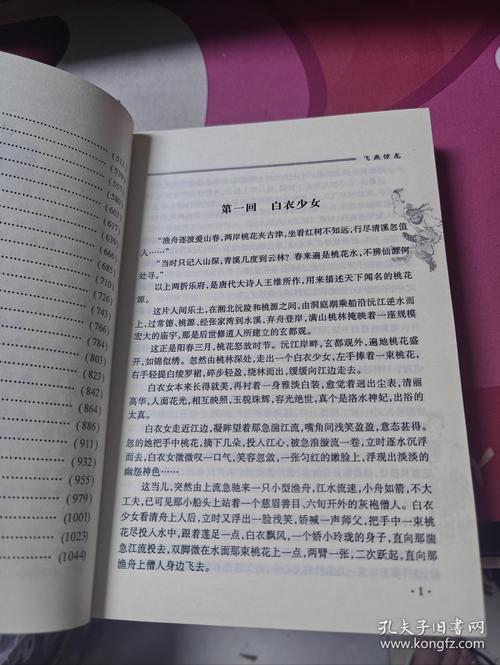 (511)
(539)
(579)
(587)
(609)
(635)
(660)
(685)
(710)
(724)
(746)
(784)
(803)
(823)
(842)
(864)
(886)
(911)
(932)
(955)
(979)
(1001)
(1023)
(1044)
飞燕惊龙
第一回 白衣少女
“渔舟逐波爱山春，两岸桃花夹古津，坐看红树不知远，行尽清溪忽值
人……”
“当时只记入山深，青溪几度到云林？春来遍是桃花水，不辨仙源何
处寻。”
以上两折乐府，是唐代大诗人王维所作，用来描述天下闻名的桃花
源。
这片人间乐土，在湘北沅陵和桃源之间，由洞庭湖乘船沿沅江逆水而
上，过常德、桃源、经张家湾到水溪，弃舟登岸，满山桃林掩映着一座规模
宏大的庙宇，那是后世修道人所建立的玄都观。
这正是阳春三月，桃花怒放时节。沅江岸畔，玄都观外，遍地桃花盛
开，如锦似绣。忽然由桃林深处，走出一个白衣少女，左手捧着一束桃花，
右手轻提白绫罗裙，碎步轻盈，绕林而出，缓缓向江边走去。
白衣女本来长得就美，再衬着一身雅淡白装，愈觉着逈出尘表，清丽
高华，人面花光，相互映照，玉貌珠辉，容光绝世，真个是洛水神妃，出浴的
太真。
白衣女走近江边，凝眸望着那急湍江流，嘴角间浅笑盈盈，意态甚得。
忽的她把手中桃花，摘下几朵，投入江心，被急浪漩流一卷，立时逐水沉浮
而去，白衣女微微叹一口气，笑容忽敛，一张匀红的嫩脸上，浮现出淡淡的
幽怨神色……
这当儿，突然由上流急驰来一只小型渔舟，江水流速，小舟如箭，不大
工夫，已可见那小船头上站着一个慈眉善目、六旬开外的灰袍僧人。白衣
少女看清舟上人后，立时又浮出一脸浅笑，娇喊一声师父，把手中一束桃
花尽投入水中，跟着莲足一点，白衣飘风，一个娇小玲珑的身子，直向那湍
急江流投去，双脚微在水面那束桃花上一点，两臂一张，二次跃起，直向那
渔舟上僧人身边飞去。
·1·
孔夫子旧书网
www.kongfz.com